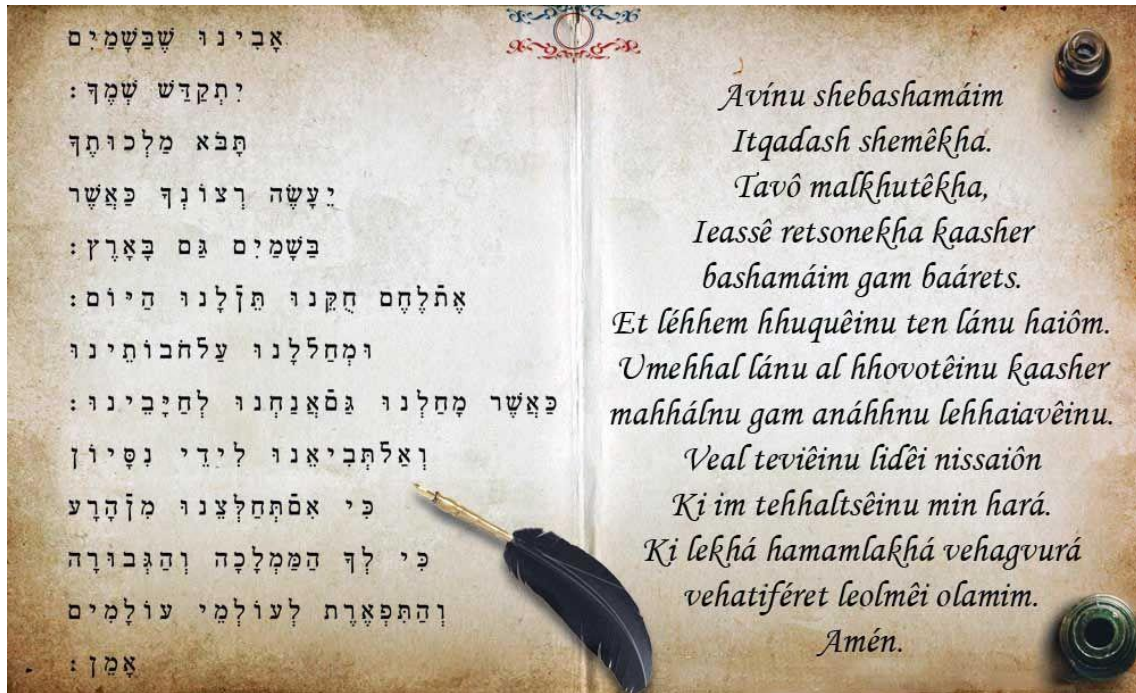 אָבִינוּ שֶׁבַּשָּׁמַיִם
יִתְקַדַּשׁ שְׁמֶךָ:
תָּבֹא מַלְכוּתֶךָ
יֵעָשֶׂה רְצוֹנְךָ כַּאֲשֶׁר
בַּשָּׁמַיִם גַּם בָּאָרֶץ:
אֶת־לֶחֶם חֻקֵּנוּ תֵּן־לָנוּ הַיּוֹם:
וּמְחַל־לָנוּ עַל־חֹבוֹתֵינוּ
כַּאֲשֶׁר מָחַלְנוּ גַּם־אֲנַחְנוּ לְחַיָּבֵינוּ:
וְאַל־תְּבִיאֵנוּ לִידֵי נִסָּיוֹן
כִּי אִם־תְּחַלְּצֵנוּ מִן־הָרָע
כִּי לְךָ הַמַּמְלָכָה וְהַגְּבוּרָה
וְהַתִּפְאֶרֶת לְעוֹלְמֵי עוֹלָמִים
אָמֵן:
Avínu shebashamáim
Itqadash shemêkha.
Tavô malkhutêkha,
Ieassê retsonekha kaasher
bashamáim gam baárets.
Et léhhem hhuquêinu ten lánu haiôm.
Umehhal lánu al hhovotêinu kaasher
mahhálnu gam anáhhnu lehhaiavêinu.
Veal teviêinu lidêi nissaiôn
Ki im tehhaltsêinu min hará.
Ki lekhá hamamlakhá vehagvurá
vehatiféret leolmêi olamim.
Amén.